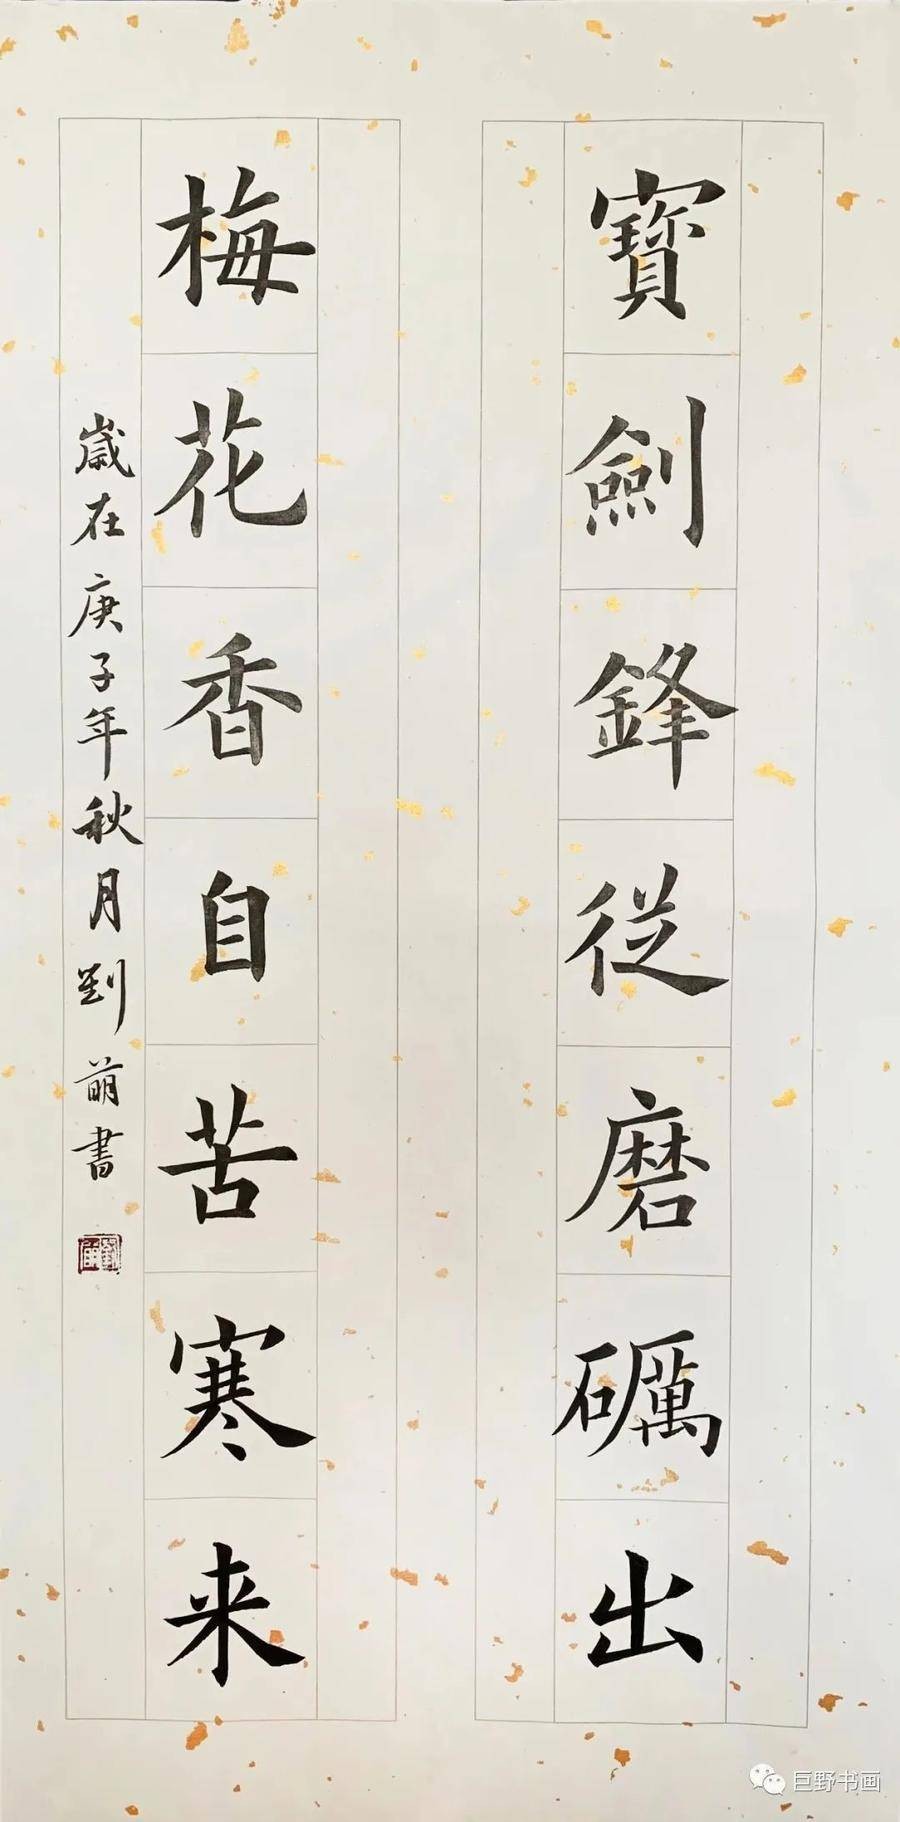 寶劍鋒從磨礪出
梅花香自苦寒来
歲在庚子年秋月劉萌書
劉萌
巨野书画